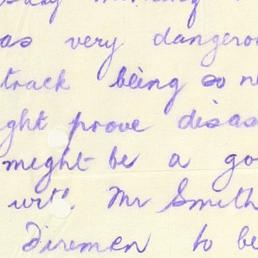 as very dangero
track being so n
ght prove disas
might be a go
Mr Smith
Diremen to be